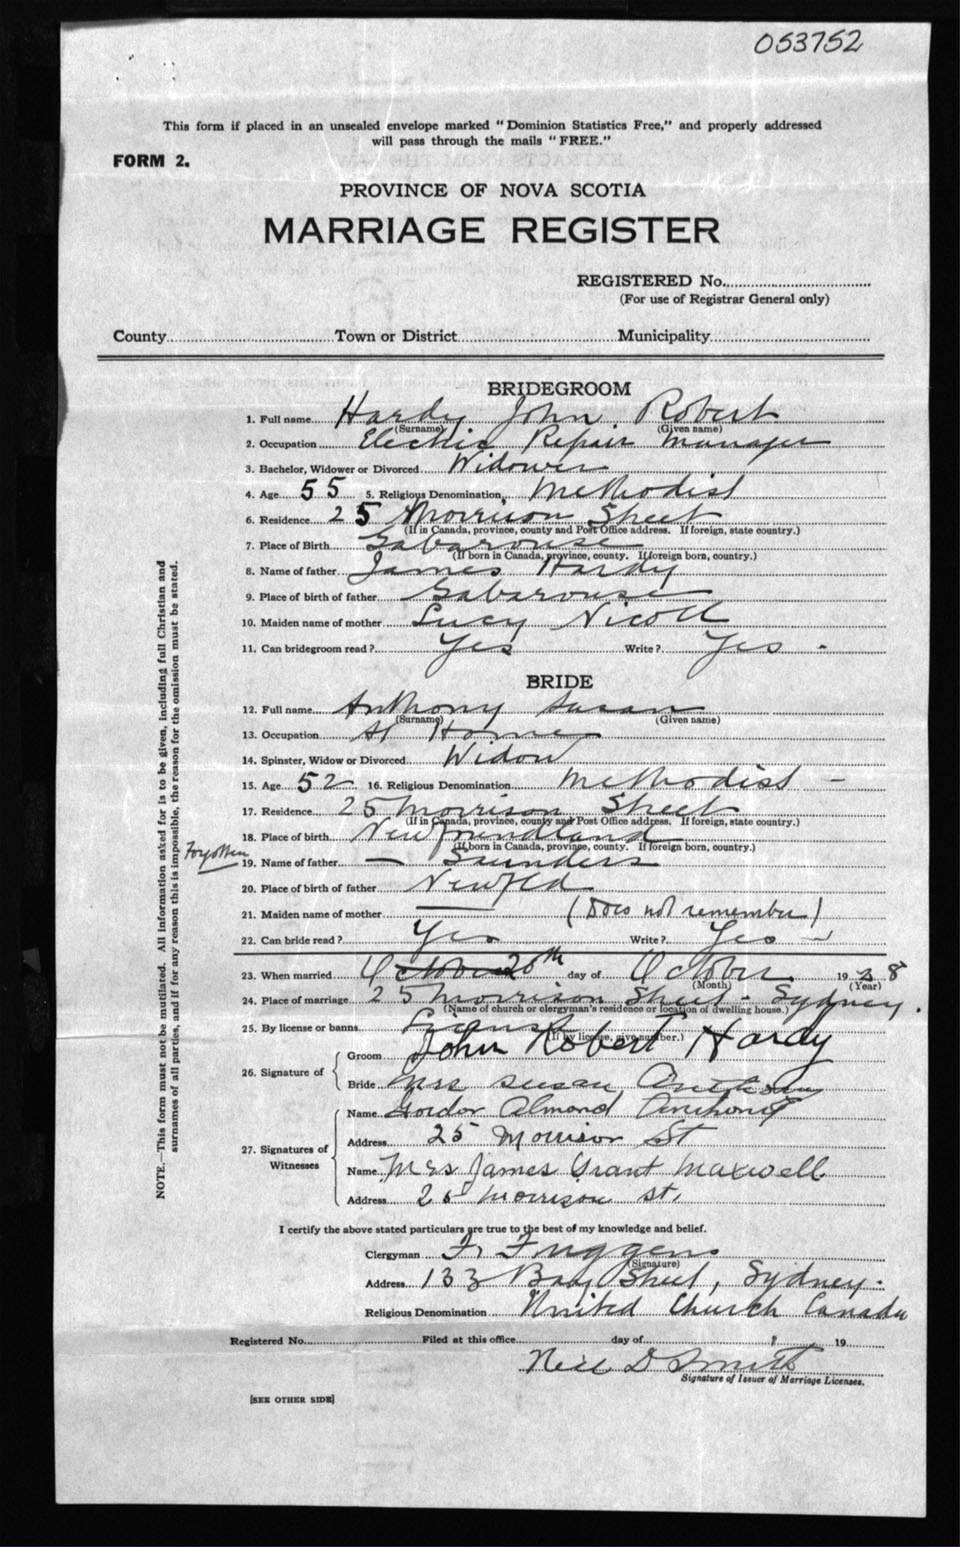 053752
This form if placed in an unsealed envelope marked "Dominion Statistics Free," and properly addressed
will pass through the mails "FREE."
FORM 2.
PROVINCE OF NOVA SCOTIA
MARRIAGE REGISTER
REGISTERED No.
(For use of Registrar General only)
County Town or District Municipality
BRIDEGROOM
1. Full name Hardy John Robert
(Surname) (Given name)
2. Occupation Electric Repair Manager
3. Bachelor, Widower or Divorced Widower
4. Age 55 5. Religious Denomination Methodist
6. Residence 25 Morrison Street
(If in Canada, province, county and Post Office address. If foreign, state country.)
7. Place of Birth Gabarouse
(If born in Canada, province, county. If foreign born, country.)
8. Name of father James Hardy
9. Place of birth of father Gabarouse
10. Maiden name of mother Lucy Nicoll
11. Can bridegroom read? Yes Write? Yes -
BRIDE
12. Full name Anthony Susan
(Surname) (Given name)
13. Occupation At Home
14. Spinster, Widow or Divorced Widow
15. Age 52 16. Religious Denomination Methodist -
17. Residence 25 Morrison Street
(If in Canada, province, county and Post Office address. If foreign, state country.)
18. Place of birth Newfoundland
(If born in Canada, province, county. If foreign born, country.)
Forgotten 19. Name of father — Saunders
20. Place of birth of father Newfld
21. Maiden name of mother — (Does not remember)
22. Can bride read? Yes Write? Yes
23. When married October 20th day of October 1928
(Month) (Year)
24. Place of marriage 25 Morrison Street - Sydney.
(Name of church or clergyman's residence or location of dwelling house.)
25. By license or banns License
(If by license, give number.)
26. Signature of
Groom John Robert Hardy
Bride Mrs Susan Anthony
27. Signatures of Witnesses
Name Gordon Almond Anthony
Address 25 Morrison St
Name Mrs James Grant Maxwell
Address 25 Morrison St,
I certify the above stated particulars are true to the best of my knowledge and belief.
Clergyman F. Friggens
(Signature)
Address 133 Bay Street, Sydney.
Religious Denomination United Church Canada
Registered No. Filed at this office day of 19
Neil D Smith
Signature of Issuer of Marriage Licenses.
[SEE OTHER SIDE]
NOTE.—This form must not be mutilated. All information asked for is to be given, including full Christian and
surnames of all parties, and if for any reason this is impossible, the reason for the omission must be stated.